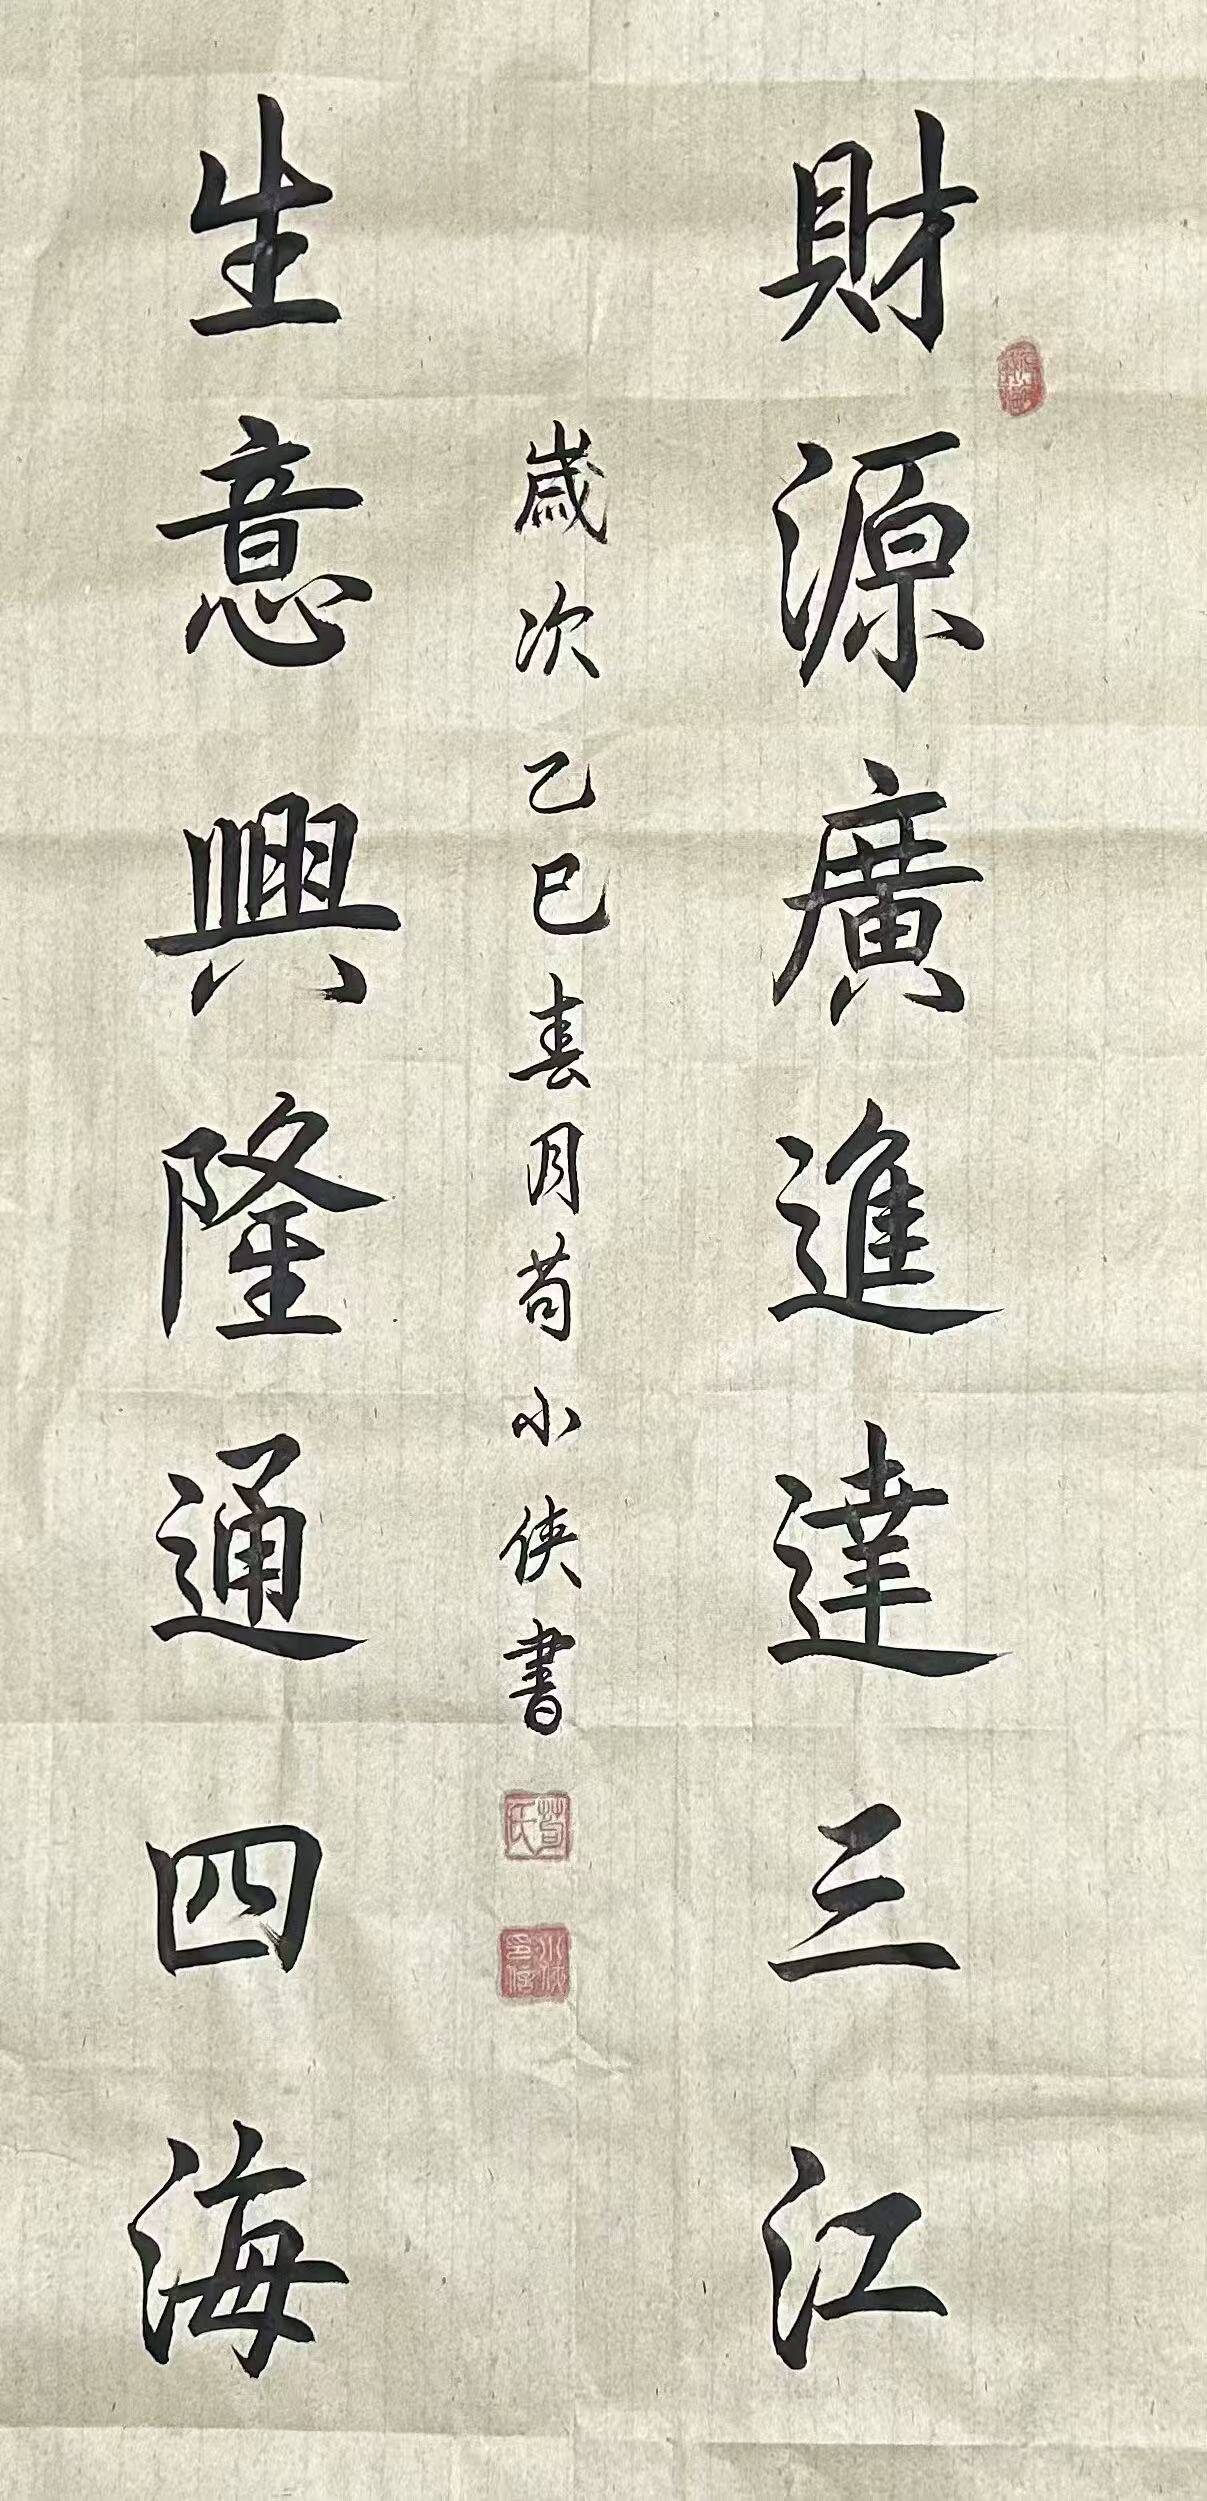 財源廣進達三江
歲次乙巳春月苟小俠書
生意興隆通四海